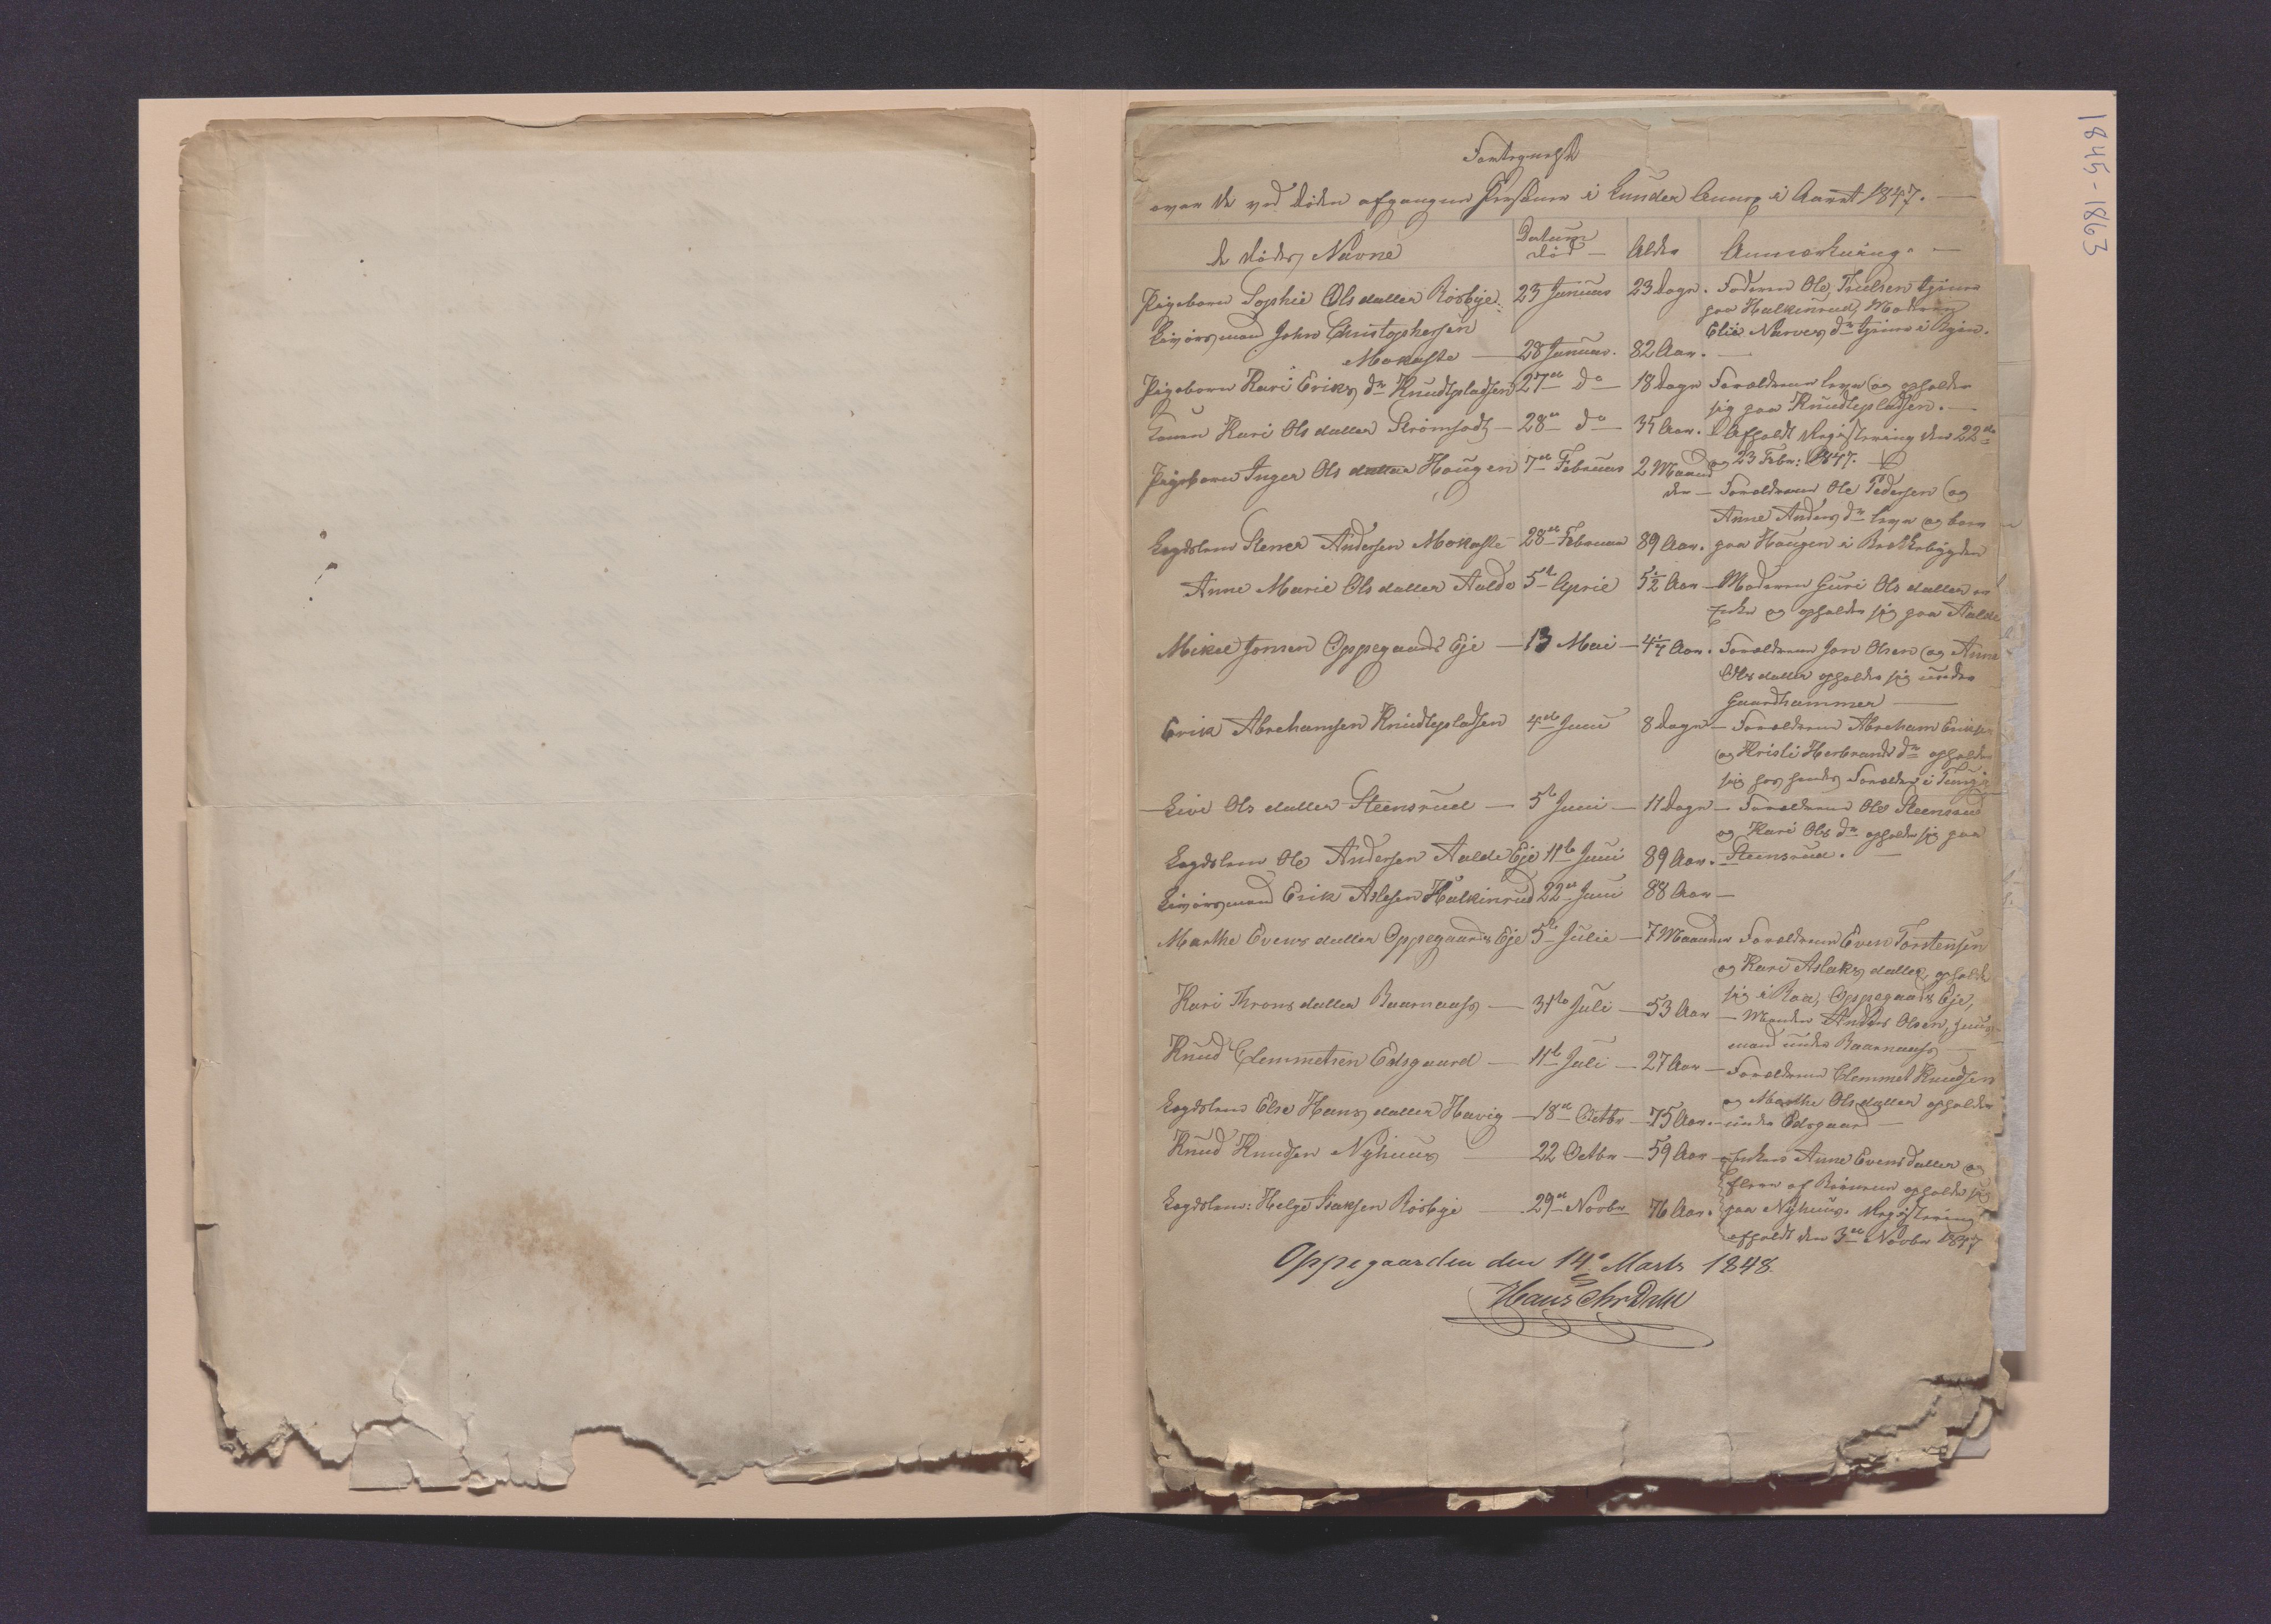 1845-1863
Fortegnelse
over de ved Døden afgangne Personer i Lunder Annex i Aaret 1847.
De Dødes Navne
Datum Død
Alder
Anmærkning
Pigebarn Sophie Olsdatter Rösbye 23 Januar 23 Dage. Faderen Ole Troelsen tjener
paa Halkinrud, Moderen
Eli Narves dr tjener i Egen.
Livørsmand John Christophersen
Mokaste 28 Januar. 82 Aar.
Pigebarn Kari Eriks dr Knudtspladsen 27de do 18 Dage Forældrene leve og opholder
sig paa Knudtspladsen.
Konen Kari Olsdatter Strömsodt 28de do 35 Aar. Afholdt Registrering den 22de
og 23 Febr: 1847.
Pigebarn Inger Olsdatter Hougen 7de Februar 2 Maane
der Forældrene Ole Pedersen og
Anne Anders dr leve og boer
paa Hougen i
Lægdslem Stener Andersen Mokaste 28de Februar 89 Aar.
Anne Marie Olsdatter Aalde 5te April 5½ Aar Moderen Guri Olsdatter er
Enke og opholder sig paa Aalde
Mikel Jonsen Oppegaards Eje 13 Mai 4¼ Aar. Forældrene Jon Olsen og Anne
Olsdatter opholder sig under
Gaardhammer
Erik Abrehamsen Knudtspladsen 4de Juni 8 Dage Forældrene Abreham Eriksen
og Kristi Herbrands dr opholder
sig hos hendes Forældre i
Live Olsdatter Steensrud 5te Juni 11 Dage Forældrene Ole Steensrud
og Kari Ols dr opholder sig paa
Steensrud.
Lægdslem Ole Andersen Aalde Eje 11te Juni 89 Aar.
Livørsmand Erik Aslesen Halkinrud 22de Juni 88 Aar
Marthe Evensdatter Oppegaards Eje 5te Julie 7 Maaneder Forældrene Even Torstensen
og Kari Aslaksdatter, opholder
sig i Roa, Oppegaards Eje,
Kari Thronsdatter Baarnaas 31te Juli 53 Aar Manden Anders Olsen, Huus-
mand under Baarnaas
Knud Clemmetsen Edsgaard 11te Juli 27 Aar Forældrene Clemmet Knudsen
og Marthe Olsdatter opholder
under Edsgaard
Lægdslem Else Hansdatter Havig 18de Octbr 75 Aar.
Knud Knudsen Nÿhuus 22 Octbr 59 Aar Enken Anne Evensdatter og
flere af Börnene opholder sig
paa Nÿhuus. Registrering
afholdt den 3de Novbr 1847
Lægdslem: Helge Isaksen Rösbye 29de Novbr 76 Aar.
Oppegaarden den 14de Marts 1848.
Hans Chr Dahl